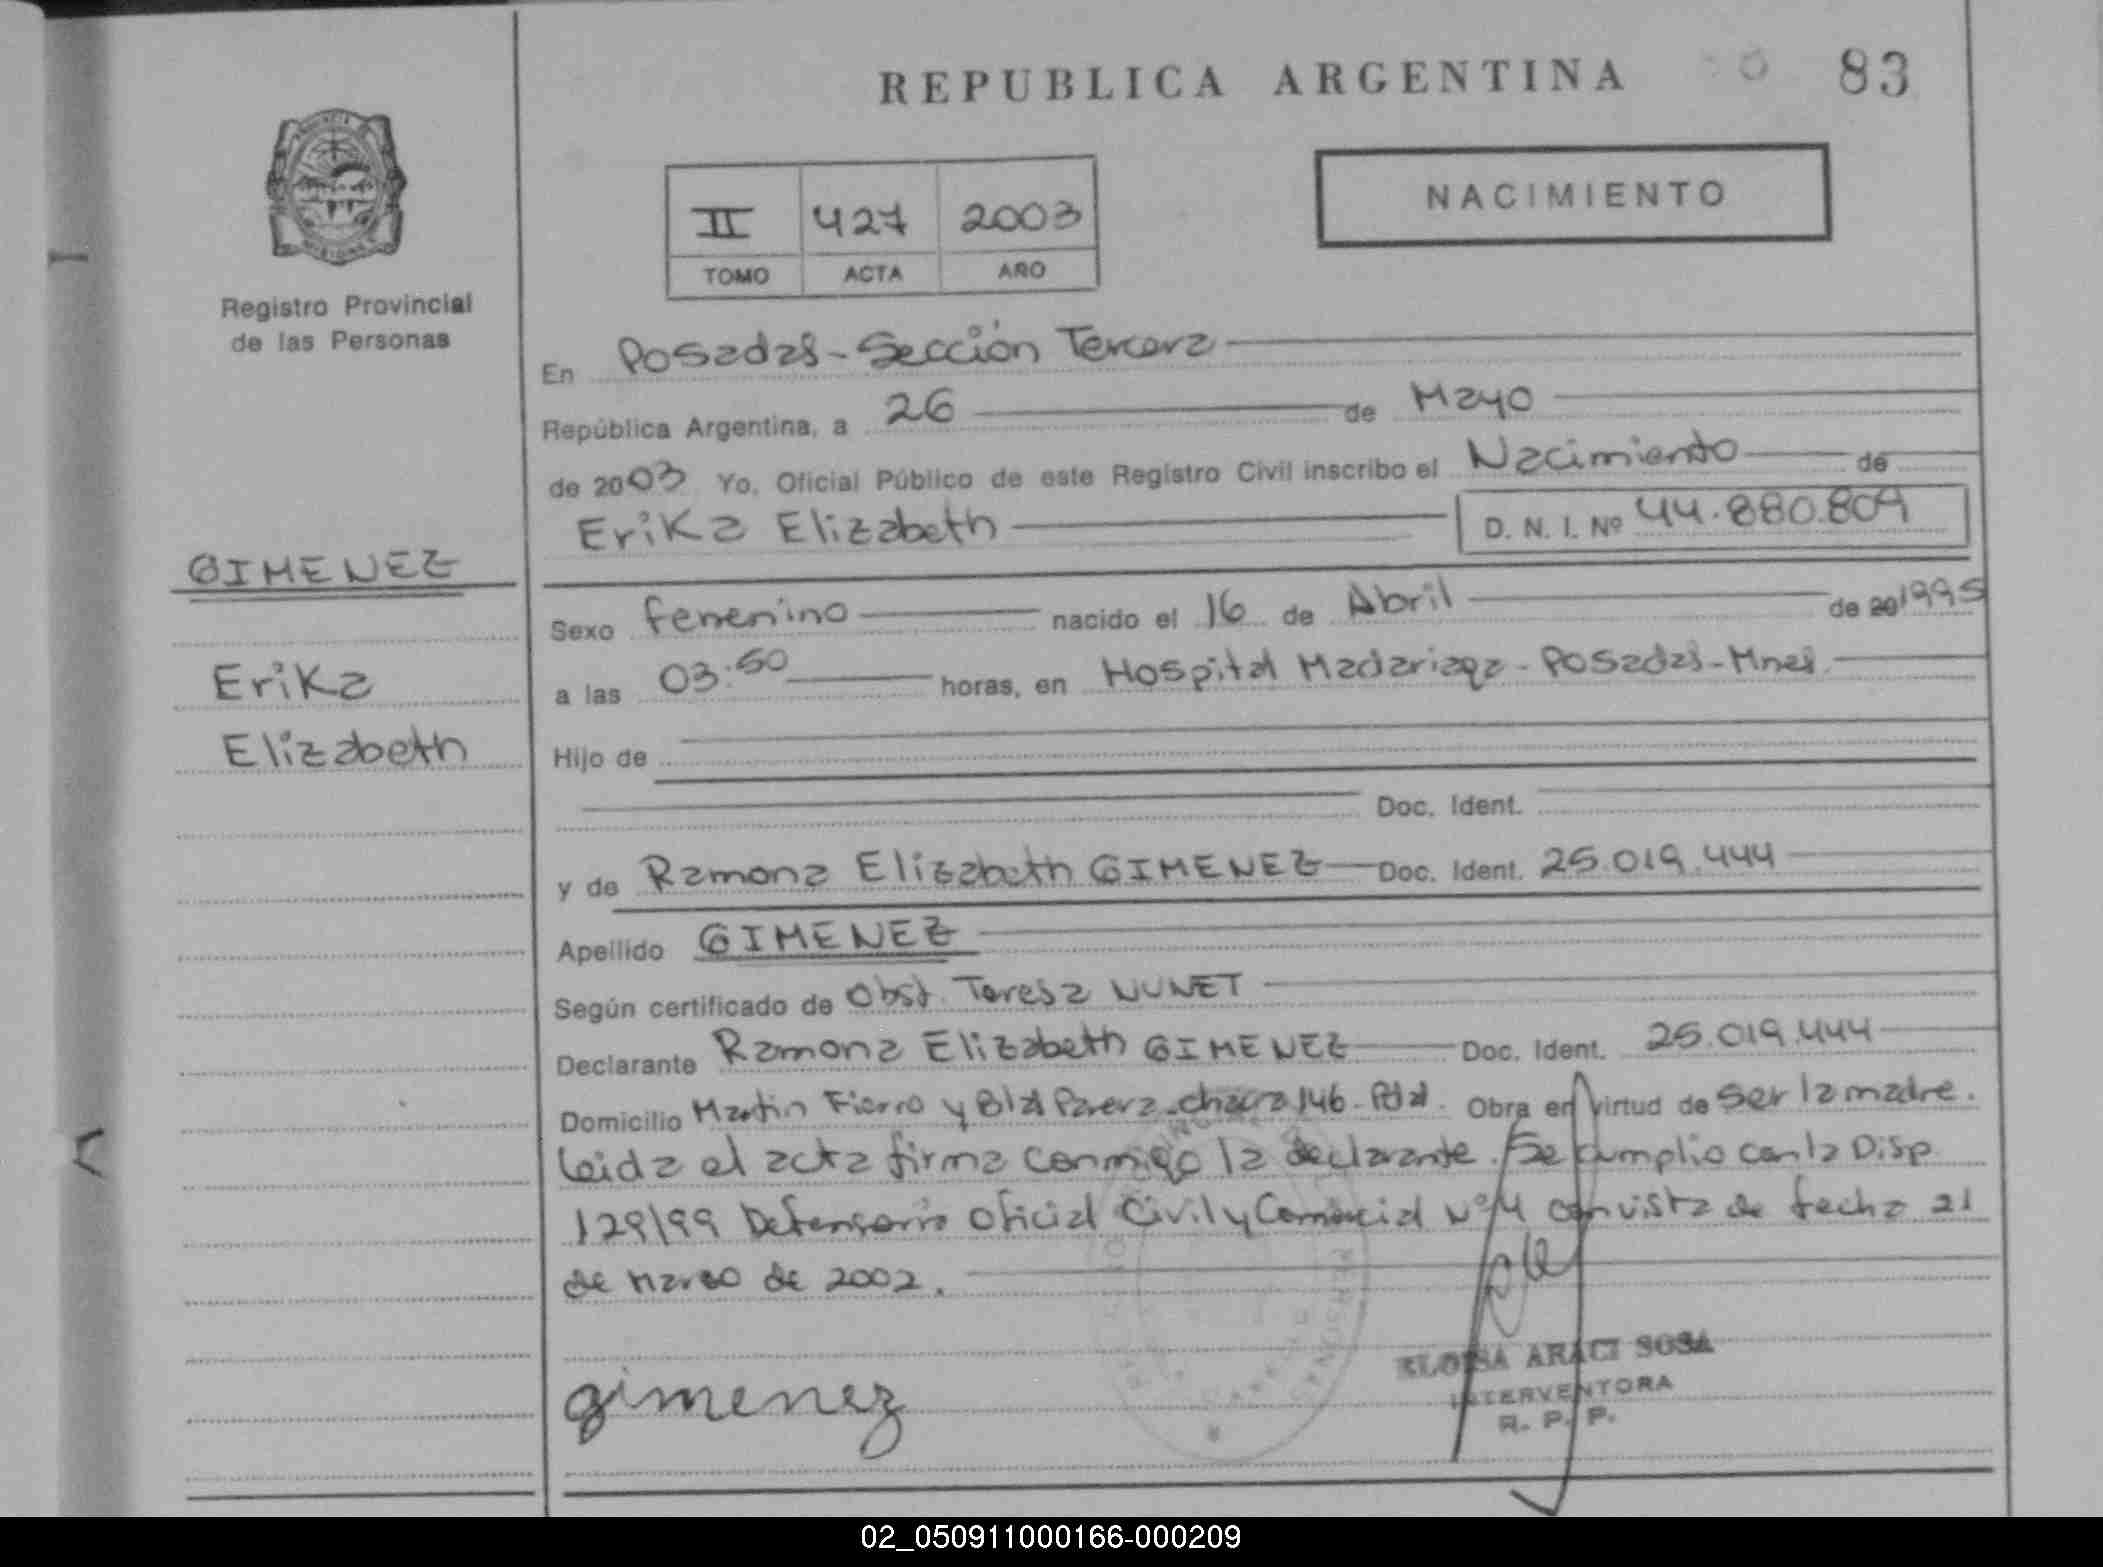 REPUBLICA ARGENTINA
83
NACIMIENTO
II 427 2003
TOMO ACTA AÑO
Registro Provincial
de las Personas
En Posadas - Sección Tercera
República Argentina, a 26 de Mayo
de 2003 Yo, Oficial Público de este Registro Civil inscribo el Nacimiento de
Erika Elizabeth D. N. I. Nº 44.880.809
GIMENEZ
Erika
Elizabeth
Sexo femenino nacido el 16 de Abril de 20 1995
a las 03:50 horas, en Hospital Madariaga - Posadas - Mnes.
Hijo de
Doc. Ident.
y de Ramona Elizabeth GIMENEZ Doc. Ident. 25.019.444
Apellido GIMENEZ
Según certificado de Obst. Teresa NUNET
Declarante Ramona Elizabeth GIMENEZ Doc. Ident. 25.019.444
Domicilio Martin Fierro y Blas Parera - chacra 146 - Pdas. Obra en virtud de ser la madre.
Leida el acta firma conmigo la declarante. Se cumplio con la Disp.
129/99 Defensoria Oficial Civil y Comercial Nº 4 con vista de fecha 21
de marzo de 2002.
gimenez
ELOISA ARACI SOSA
INTERVENTORA
R. P. P.
02_050911000166-000209